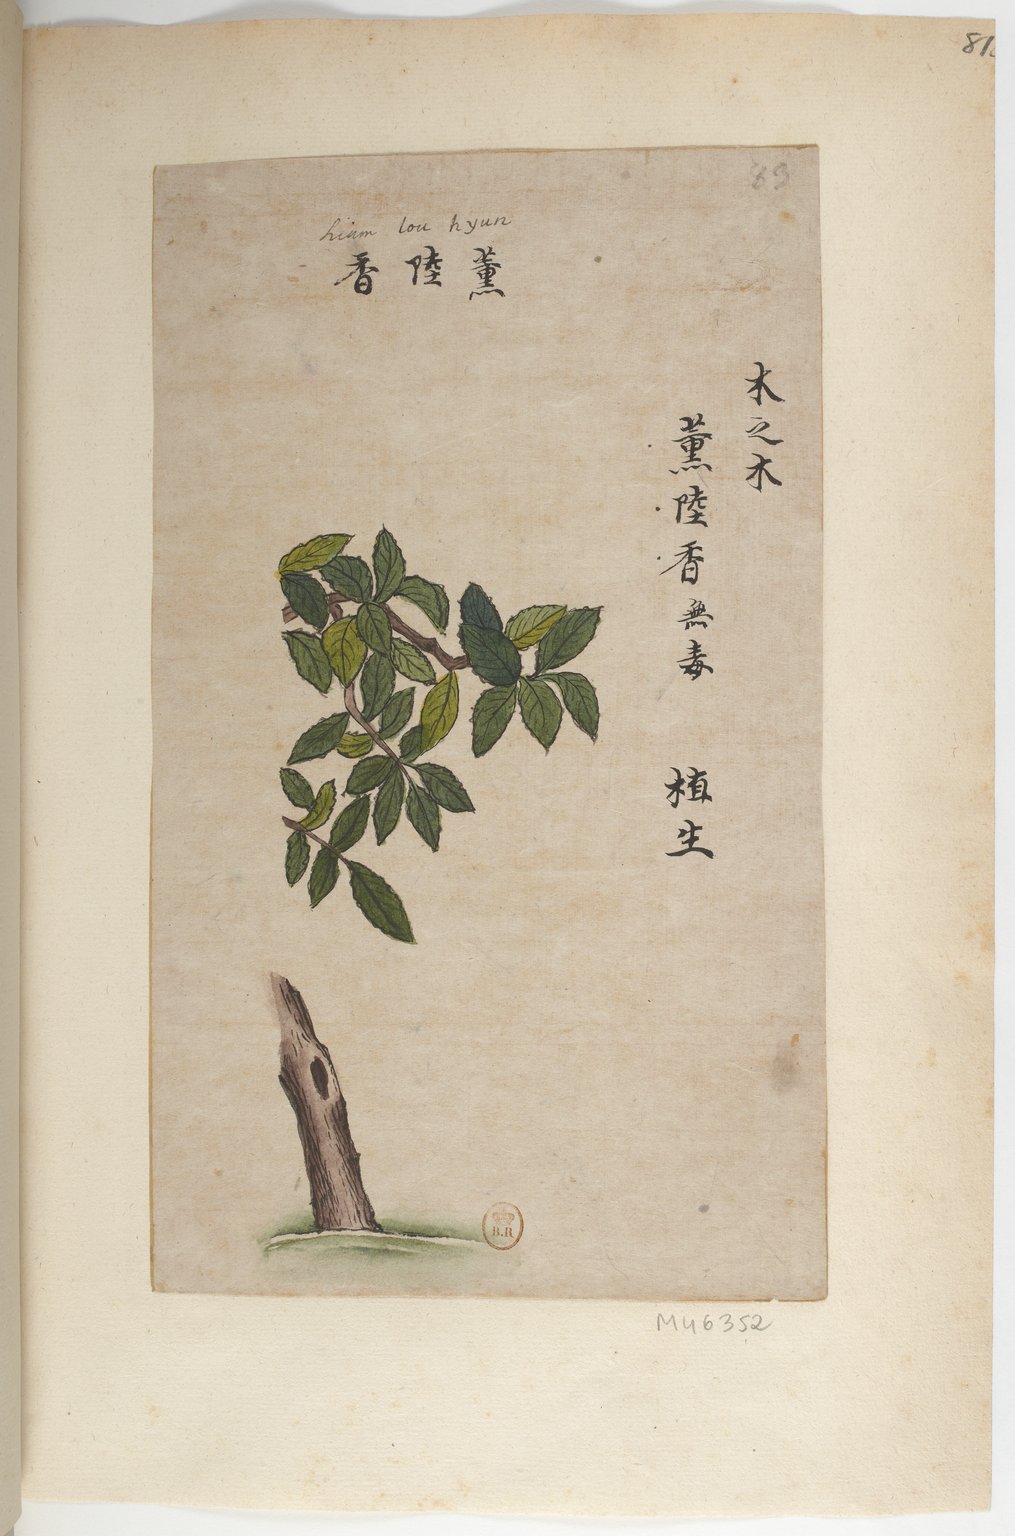 83
hiam lou hyun
香陸薰
木之木
薰陸香無毒 植生
B.R
M46352